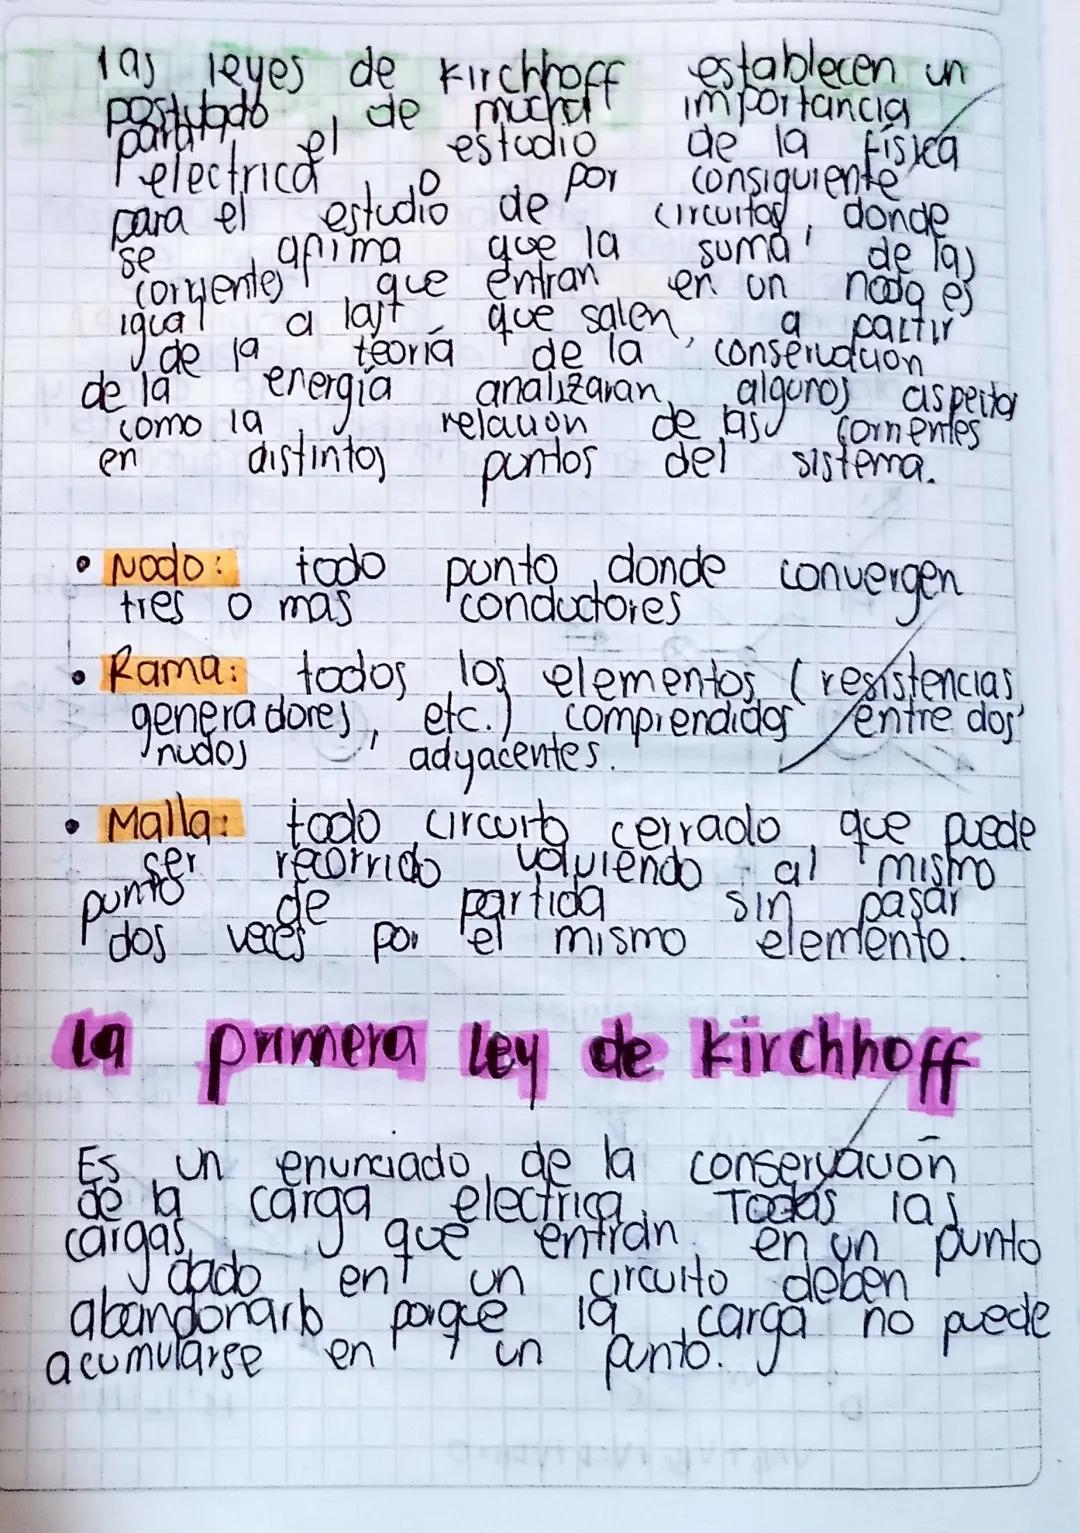 las leyes de Kirchhoff establecen un
postulado de mucha importancia
para el estudio de la física
electrica, o por consiguiente
para el estudio de circuitos, donde
se afirma que la suma de las
corrientes que entran en un nodo es
igual a las que salen, a partir
de la teoría de la conservacion
de la energía analizaran algunos aspectos
como la relacion de las corrientes
en distintos puntos del sistema.
• Nodo: todo punto donde convergen
tres o mas conductores
• Rama: todos los elementos (resistencias,
generadores, etc.) comprendidos entre dos
nudos adyacentes.
• Malla: todo circuito cerrado que puede
ser recorrido volviendo al mismo
punto de partida sin pasar
dos veces por el mismo elemento.
la primera Ley de Kirchhoff
Es un enunciado de la conservación
de la carga electrica. Todas las
cargas que entran en un punto
dado en un circuito deben
abandonarlo porque la carga no puede
acumularse en un punto.